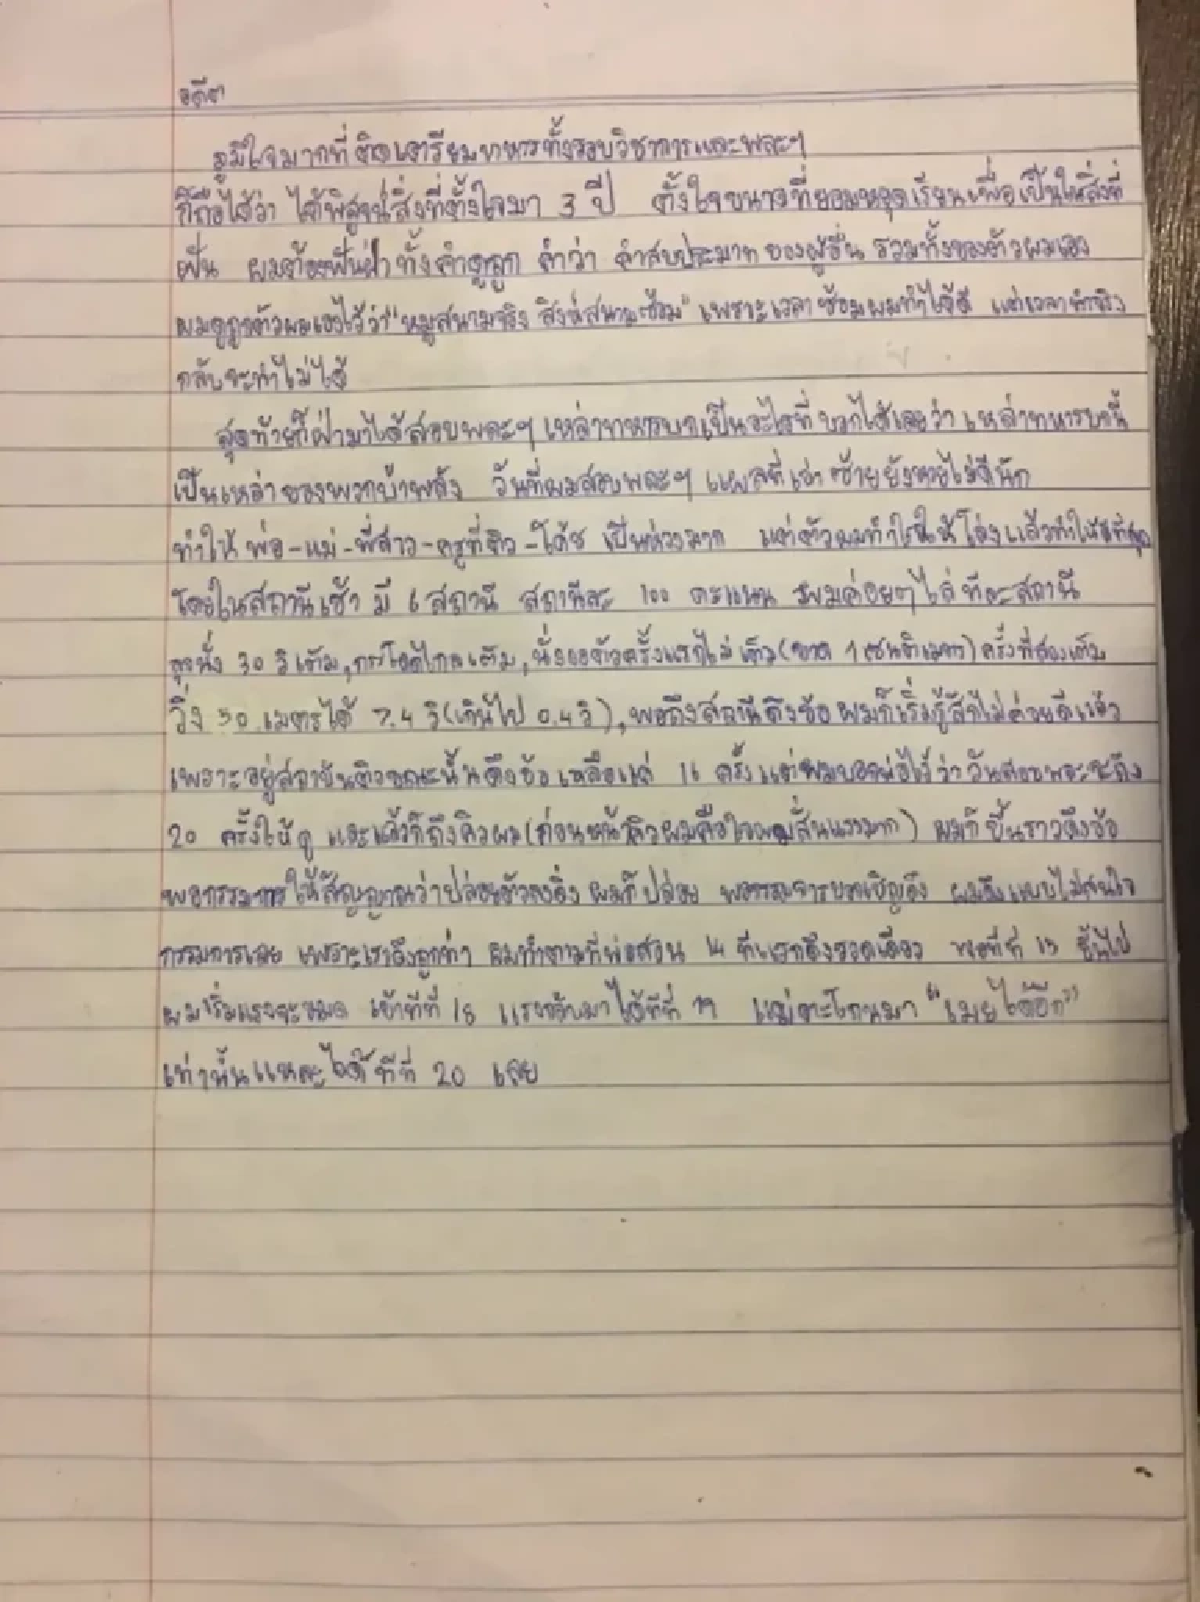 อดีต
ภูมิใจมากที่ติดเตรียมทหารทั้งรอบวิชาการและพละๆ
ก็ถือได้ว่า ได้พิสูจน์สิ่งที่ตั้งใจมา 3 ปี ตั้งใจขนาดที่ยอมหยุดเรียนเพื่อเป็นในสิ่งที่
ฝัน ผมต้องฟันฝ่าทั้งคำดูถูก คำว่า คำสบประมาท ของผู้อื่น รวมทั้งของตัวผมเอง
ผมดูถูกตัวผมเองไว้ว่า "หมูสนามจริง สิงห์สนามซ้อม" เพราะเวลาซ้อมผมทำได้ดี แต่เวลาทำจริง
กลับจะทำไม่ได้
สุดท้ายก็ฝ่ามาได้สอบพละๆ เหล่าทหารบกเป็นอะไรที่บอกได้เลยว่า เหล่าทหารบกนี้
เป็นเหล่าของพวกบ้าพลัง วันที่ผมสอบพละๆ แผลที่เข่าซ้ายยังหายไม่ดีนัก
ทำให้ พ่อ-แม่-พี่สาว-ครูที่ติว-โค้ช เป็นห่วงมาก แต่ตัวผมทำใจให้โล่งแล้วทำให้ดีที่สุด
โดยในสถานีเช้า มี 6 สถานี สถานีละ 100 คะแนน ผมค่อยๆไล่ทีละสถานี
ลุกนั่ง 30 วิเต็ม, กระโดดไกลเต็ม, นั่งงอตัวครั้งแรกไม่เต็ม(ขาด 1 เซนติเมตร) ครั้งที่สองเต็ม
วิ่ง 50 เมตรได้ 7.4 วิ(เกินไป 0.4 วิ), พอถึงสถานีดึงข้อ ผมก็เริ่มรู้สึกไม่ค่อยดีแล้ว
เพราะอยู่สถาบันติวขณะนั้นดึงข้อ เหลือแค่ 16 ครั้ง แต่ผมบอกพ่อไว้ว่า วันสอบพละจะดึง
20 ครั้งให้ดู และแล้วก็ถึงคิวผม(ก่อนหน้าคิวผมคือใจผมสั่นแรงมาก) ผมก็ขึ้นราวดึงข้อ
พอกรรมการให้สัญญาณว่าปล่อยตัวลงดิ่ง ผมก็ปล่อย พอกรรมการบอกเชิญดึง ผมดึงแบบไม่สนใจ
กรรมการเลย เพราะเราดึงถูกท่า ผมทำตามที่พ่อสอน 14 ทีแรกดึงรวดเดียว พอทีที่ 15 ขึ้นไป
ผมเริ่มแรงจะหมด เข้าทีที่ 18 แรงกลับมาได้ทีที่ 19 แม่ตะโกนมา "เมยได้อีก"
เท่านั้นแหละได้ทีที่ 20 เลย